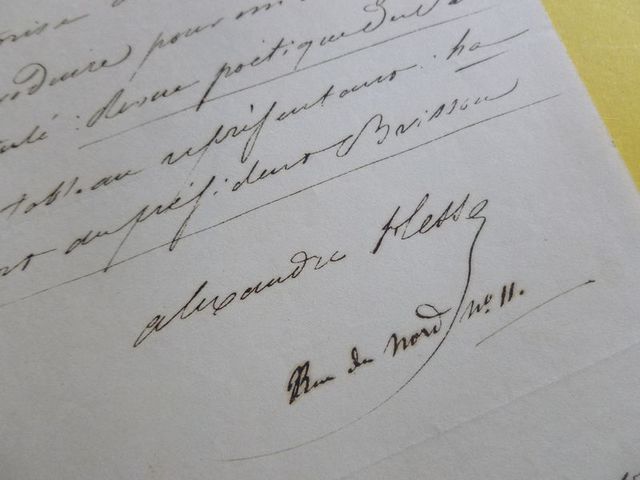 pour
: Revue poétique du
tableau représentant : ha
du président Brisson
alexandre Hesse
Rue du Nord Nº 11.